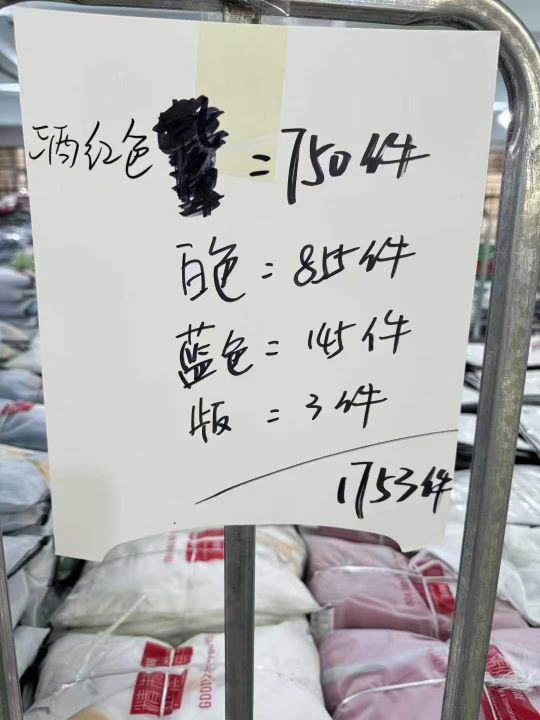 酒红色 = 750件
白色 = 855件
蓝色 = 145件
版 = 3件
1753件
GOOD